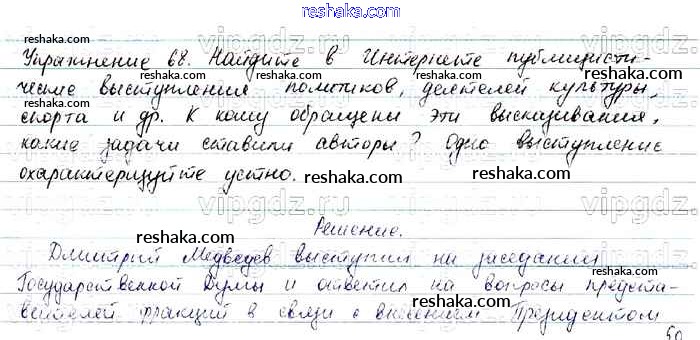 reshaka.com
Упражнение 68. Найдите в Интернете публицисти-
ческие выступления политиков, деятелей культуры,
спорта и др. К кому обращены эти высказывания,
какие задачи ставили авторы? Одно выступление
охарактеризуйте устно.
Решение.
Дмитрий Медведев выступил на заседании
Государственной Думы и ответил на вопросы предста-
вителей фракций в связи с внесением Президентом
50